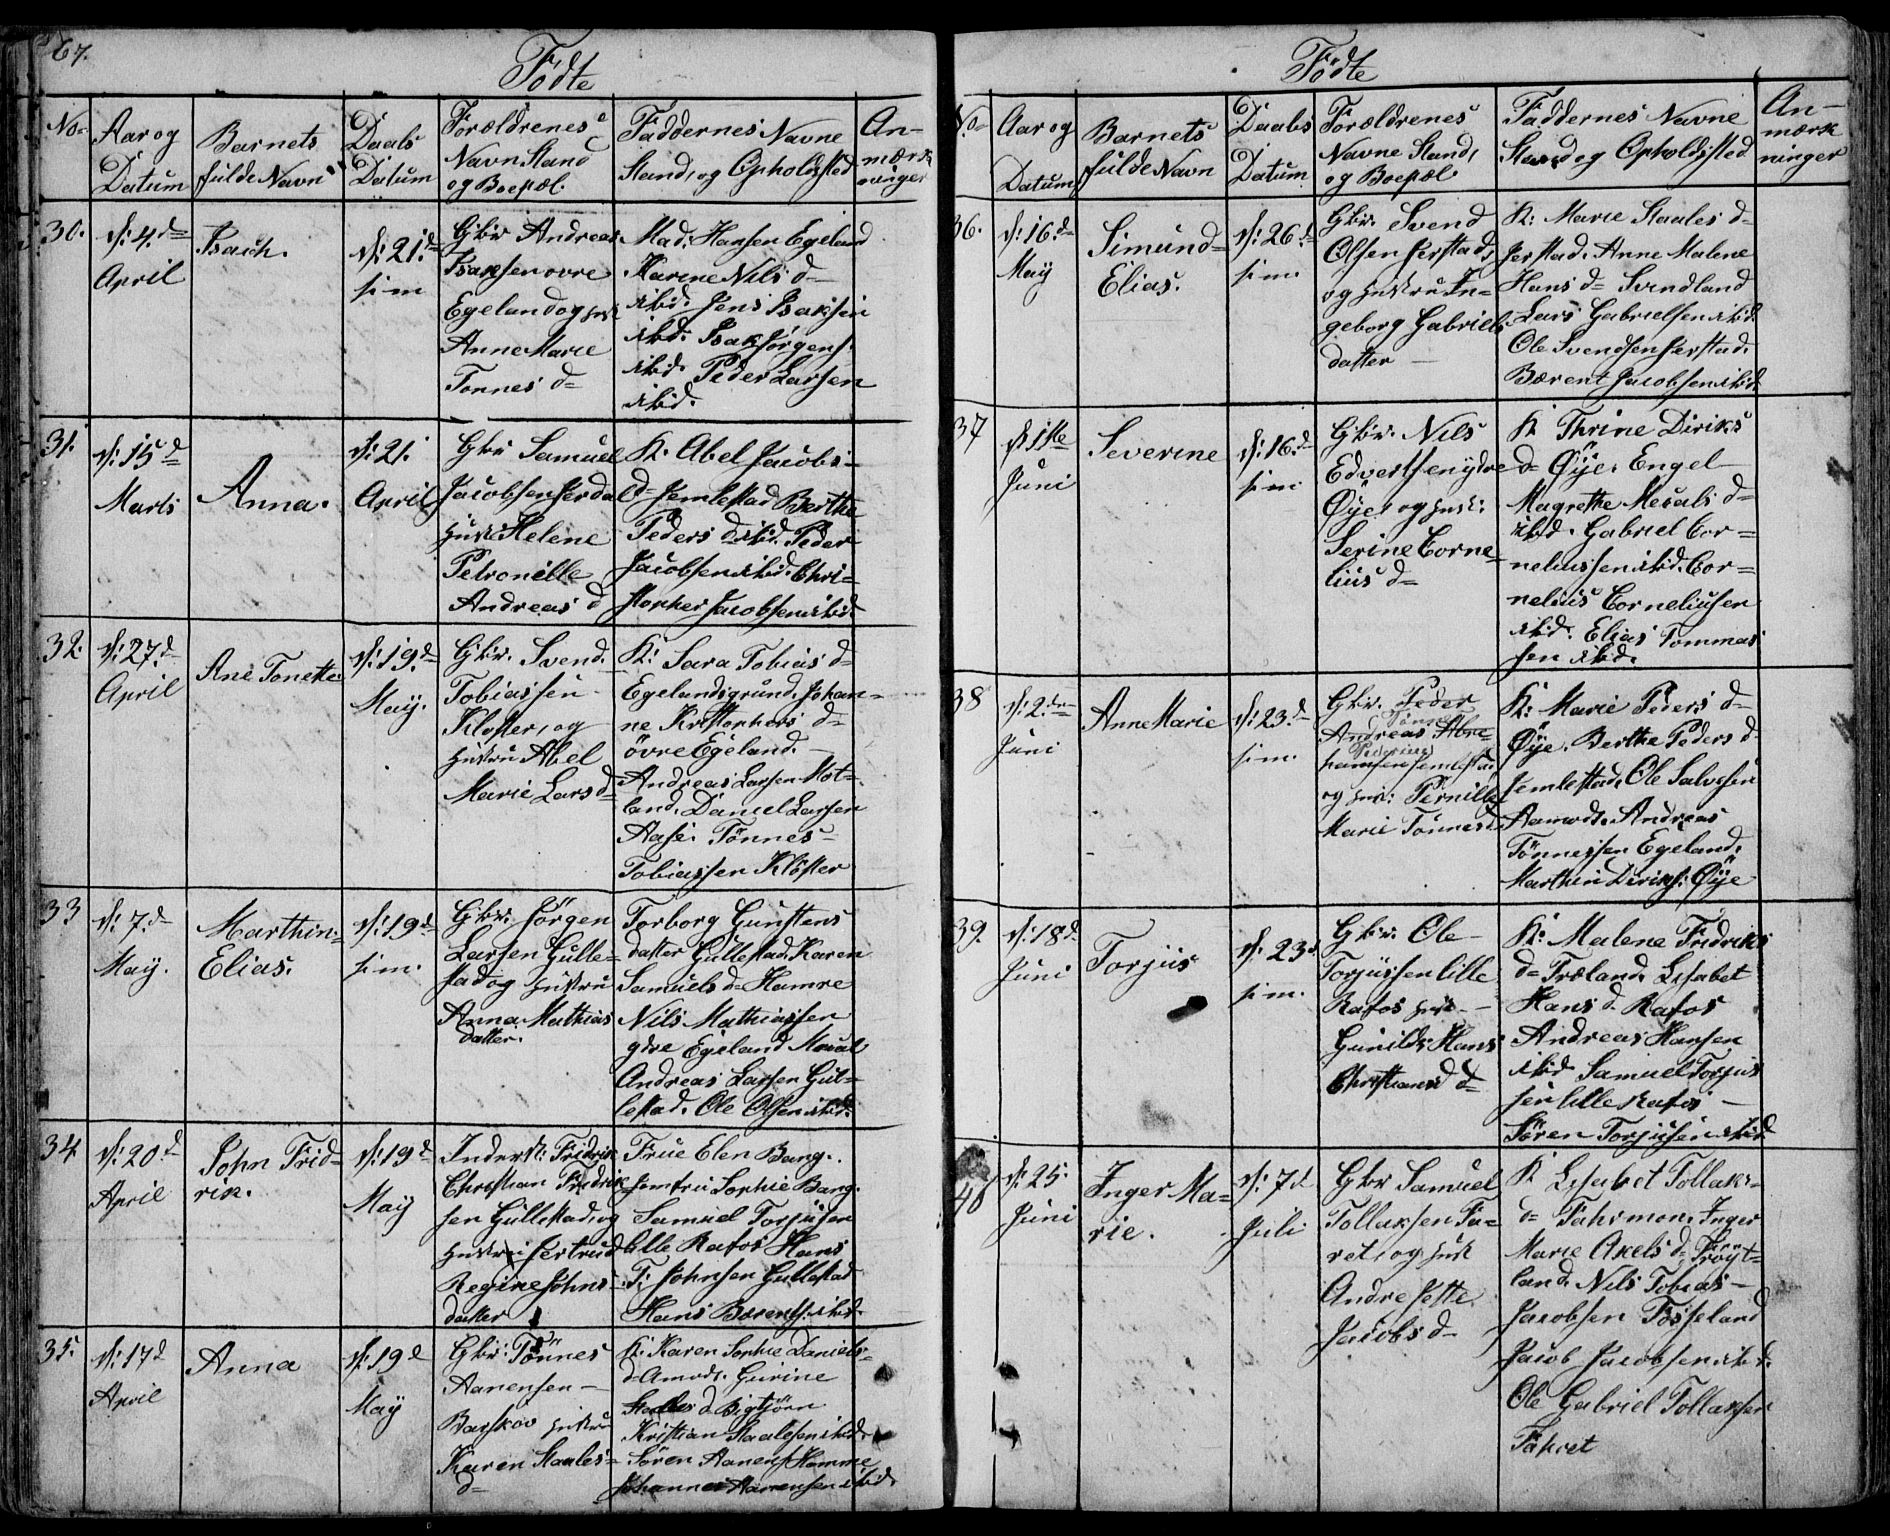 67.
Födte
No.
Aar og
Datum
Barnets
fulde Navn
Daabs
Datum
Forældrenes
Navn Stand
og Boepæl.
Faddernes Navne
Stand, og Opholdssted
An-
mærk
ninger
30.
d: 4.de
April
Isach.
d: 21.d
s: m
Gbr Andreas
Isaksen øvre
Egeland og hust
Anne Marie
Tonnes d=
Mad. Hansen Egeland
Karine Nils d=
ibid. Jens Isaksen
ibid. Isak Jørgens.
ibid. Peder Larsen
ibid.
31.
d: 15 d
Marts
Anna.
d: 21.
April
Gbr Samuel
Jacobsen
hust Helene
Petronille
Andreas d
K. Abel Jacobs-
d= Jemlestad Berthe
Peders d ibid. Peder
Jacobsen ibid. Chri=
stopher Jacobsen ibid.
32.
d: 27.d
April
Ane Tonette.
d: 19.d
May.
Gbr. Svend
Tobiassen
Kloster, og
hustru Abel
Marie Lars d=
K: Sara Tobias d=
Egelandsgrund. Johan=
ne Kristophers d=
övre Egeland.
Andreas Larsen Mot=
land. Daniel Larsen
Aase. Tönnes
Tobiassen Klöster
33
d: 7.d
May.
Marthin=
Elias.
d: 19 d
s: m.
Gbr. Jörgen
Larsen Gulle=
stad og hustru
Anna Mathias
datter.
Torborg Gunstens
datter Gullestad. Karen
Samuels d= Hamre
Nils Mathiassen
ydre Egeland
Andreas Larsen Gul=
lestad. Ole Olsen ibid.
34
d: 20.d
April
John Frid=
rik.
d: 19 d
May
Inderst: Fridrik
Christian Fredrik
sen Gullestad, og
hustru Gertrud
Regine Johns=
datter
Frue Elen Bang.
Jomfru Sophie Bang.
Samuel Torjusen
lille Rafos Hans
T: Johnsen Gullestad
Hans Bærents. ibid.
35.
d: 17 d
April
Anna
d: 19 d
May
Gbr: Tönnes
Aanensen
Barskov hustru
Karen Staales=
d=
K: Karen Sophie Daniels=
d= Amodt. Gurine
Staales d Bigtjörn
Kristian Staalesen ibid.
Sören Aanens. Homme
Johannes Aanensen ibid.
Födte
No.
Aar og
Datum
Barnets
fulde Navn
Daabs
Datum
Forældrenes
Navne Stand,
og Boepæl
Faddernes Navne
Stand og Opholdssted
An-
mærk
ninger
36.
d: 16.d
May
Simund=
Elias.
d: 26.d
s: m.
Gbr. Svend
Olsen Jerstad
og hustru In=
geborg Gabriels
datter
K: Marie Staales d=
Jerstad. Anne Malene
Hans d= Svindland
Lars Gabrielsen ibid.
Ole Svendsen Jerstad.
Bærent Jacobsen ibid
37
d: 1te
Juni
Severine
d: 16.d
s: m
Gbr. Nils
Edvertsen ydre
Öye, og hust:
Serine Corne=
lius d=
K Thrine Diriks
d= Öye. Engel
Magrethe d=
ibid. Gabriel Cor=
neliussen ibid. Cor=
nelius Corneliusen
ibid. Elias Tommas
sen ibid.
38
d: 2.den
Juni
Anne Marie
d: 23.d
s: m.
Gbr. Peder
Tönnes
Andreas Abra=
Pedersen
hamsen Jemlestad
og hust: Pernille
Marie Tönnes d.
K: Marie Peders d=
Öye. Berthe Peders d.
Jemlestad. Ole Salvesen
Aamodt. Andreas
Tönnessen Egeland.
Marthin Diriks: Öye
39.
d: 18 d.
Juni
Torjus
d: 23 d
s: m.
Gbr. Ole
Torjussen lille
Rafos hust
Gunild Hans
Christians d=
K: Malene Fridriks
d= Træland. Lisabet
Hans d. Rafos
Andreas Hansen
ibid Samuel Torjus
sen lille Rafos
Sören Torjusen ibid
40
d: 25.
Juni
Inger Ma=
rie.
d: 7 d
Juli
Gbr Samuel
Tollaksen Fa=
ret, og hust
Andrejette
Jacobs d=
K Lisabet Tollaks=
d= Fahrmon. Inger
Marie Axels d=
land. Nils Tobias
Jacobsen Fosseland
Jacob Jacobsen ibid.
Ole Gabriel Tollaksen
Fahret